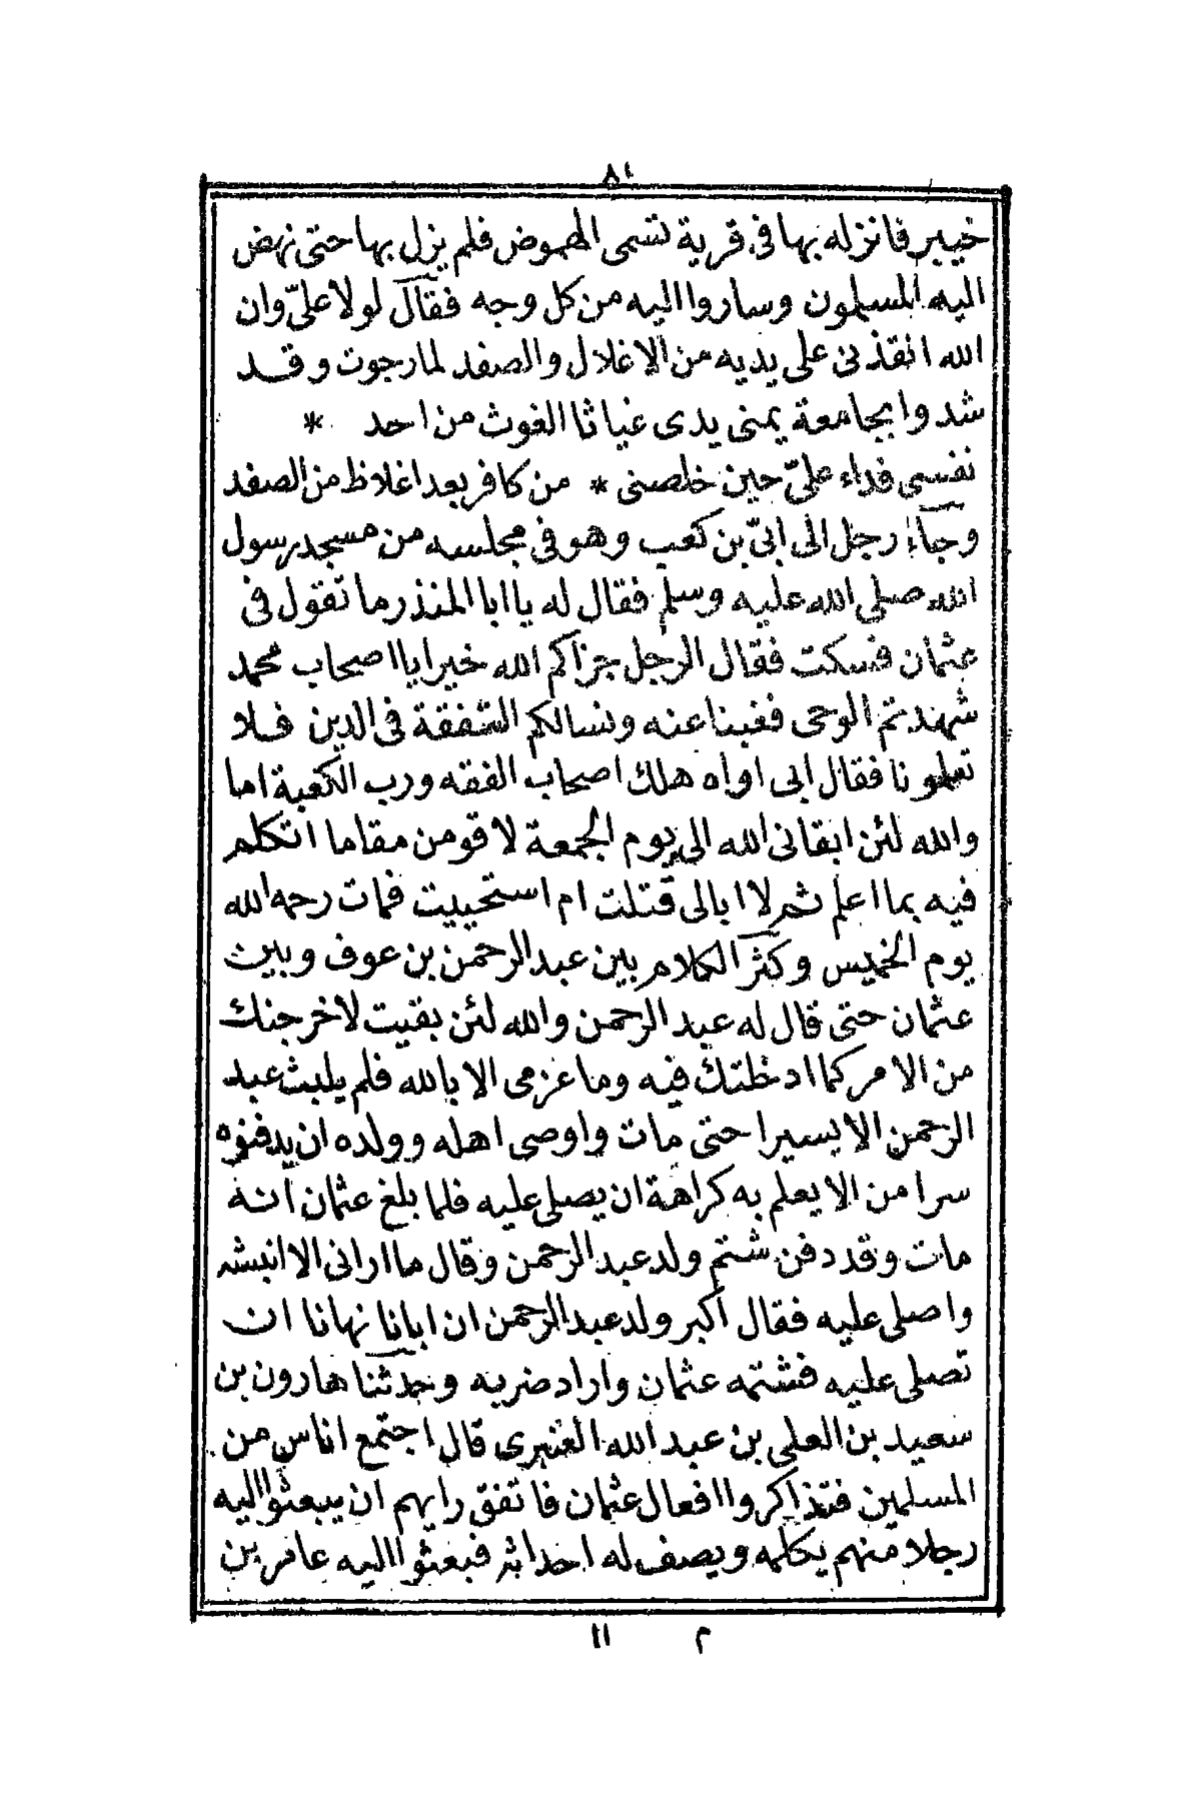 ٨١
خيبر فانزله بها فى قرية تسمى الطموض فلم يزل بها حتى نهض
اليه المسلمون وساروا اليه من كل وجه فقال لولا علىّ وان
الله انقذنى على يديه من الاغلال والصفد لما رجوت وقد
شدوا بجامعة يمنى يدى غياثا الغوث من احد *
نفسى فداء علىّ حين خلصنى * من كافر بعد اغلاظ من الصفد
وجاء رجل الى ابىّ بن كعب وهو فى مجلسه من مسجد رسول
الله صلى الله عليه وسلم فقال له يا ابا المنذر ما تقول فى
عثمان فسكت فقال الرجل جزاكم الله خيرا يا اصحاب محمد
شهدتم الوحى فغبنا عنه ونسالكم الشفقة فى الدين فلا
تعلمونا فقال ابى اواه هلك اصحاب الفقه ورب الكعبة اما
والله لئن ابقانى الله الى يوم الجمعة لاقومن مقاما اتكلم
فيه بما اعلم ثم لا ابالى قتلت ام استحييت فمات رحمه الله
يوم الخميس وكثر الكلام بين عبد الرحمن بن عوف وبين
عثمان حتى قال له عبد الرحمن والله لئن بقيت لاخرجنك
من الامر كما ادخلتك فيه وما عزمى الا بالله فلم يلبث عبد
الرحمن الا يسيرا حتى مات واوصى اهله وولده ان يدفنوه
سرا من الا يعلم به كراهة ان يصلى عليه فلما بلغ عثمان انه
مات وقد دفن شتم ولد عبد الرحمن وقال ما ارانى الا انبشه
واصلى عليه فقال اكبر ولد عبد الرحمن ان ابانا نهانا ان
تصلى عليه فشتمه عثمان واراد ضربه وحدثنا هارون بن
سعيد بن العلى بن عبد الله العنبرى قال اجتمع اناس من
المسلمين فتذاكروا افعال عثمان فاتفق رايهم ان يبعثوا اليه
رجلا منهم يكلمه ويصف له احداثه فبعثوا اليه عامر بن
م ١١